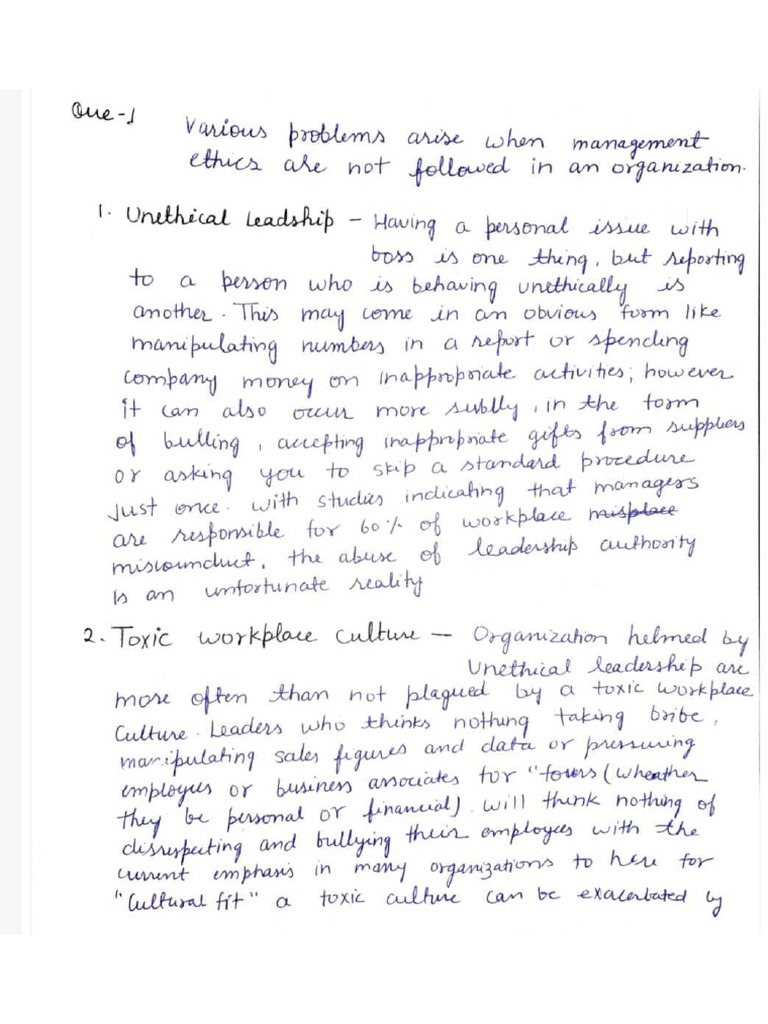 Que-1
Various problems arise when management
ethics are not followed in an organization.
1. Unethical Leadship – Having a personal issue with
boss is one thing, but reporting
to a person who is behaving unethically is
another. This may come in an obvious form like
manipulating numbers in a report or spending
company money on inappropriate activities; however
it can also occur more subtly, in the form
of bulling, accepting inappropriate gifts from suppliers
or asking you to skip a standard procedure
just once. with studies indicating that managers
are responsible for 60% of workplace misplace
miscounduct, the abuse of leadership authority
is an unfortunate reality
2. Toxic workplace culture – Organization helmed by
unethical leadership are
more often than not plagued by a toxic workplace
Culture. Leaders who thinks nothing taking bribe,
manipulating sales figures and data or pressuring
employees or business associates for "fovers (wheather
they be personal or financial). will think nothing of
disrespecting and bullying their employees with the
current emphasis in many organizations to here for
"Cultural fit" a toxic culture can be exacerbated by